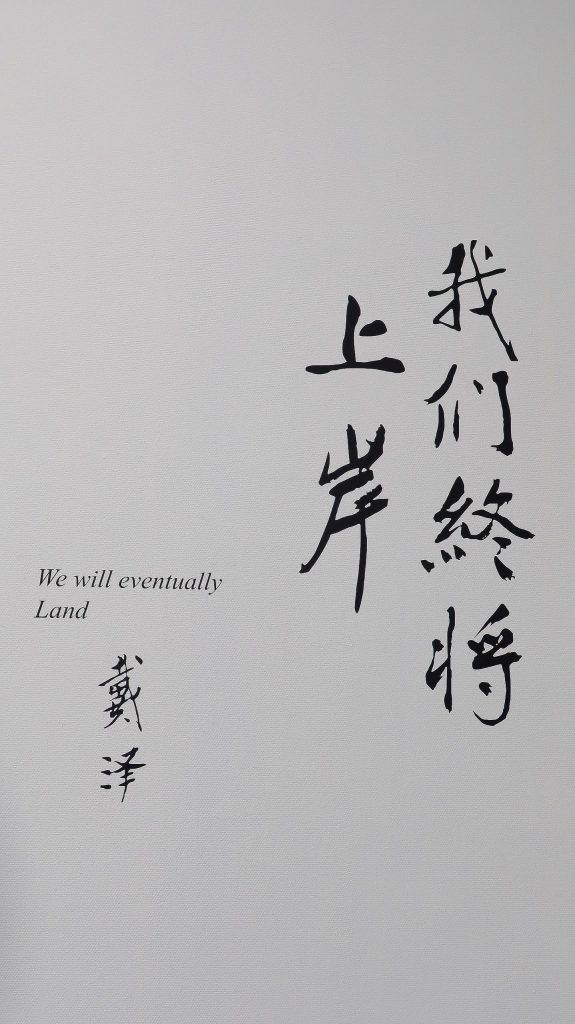 我们終将
上岸
We will eventually
Land
戴泽